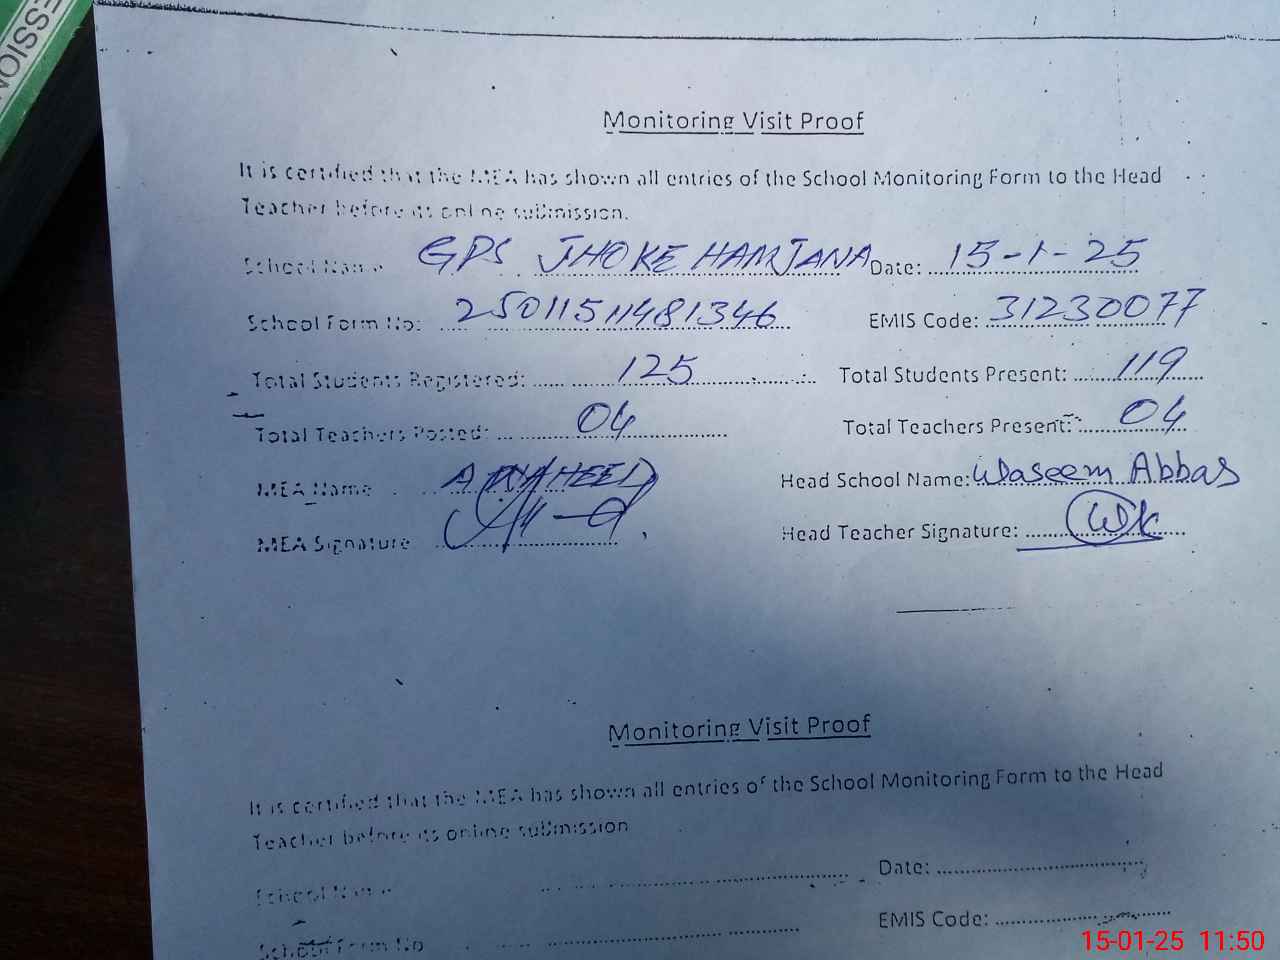 ESSION
Monitoring Visit Proof
It is certified that the MEA has shown all entries of the School Monitoring Form to the Head
Teacher before its online submission.
School Name GPS JHOKE HAMJANA Date: 15-1-25
School Form No: 25011511481346 EMIS Code: 31230077
Total Students Registered: 125 Total Students Present: 119
Total Teachers Posted: 04 Total Teachers Present: 04
MEA Name A WAHEED Head School Name: Waseem Abbas
MEA Signature Head Teacher Signature:
Monitoring Visit Proof
It is certified that the MEA has shown all entries of the School Monitoring Form to the Head
Teacher before its online submission
School Name Date:
School Form No EMIS Code:
15-01-25 11:50